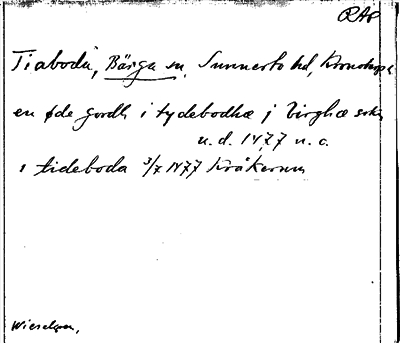 RAP
Tiaboda, Bärga sn, Sunnerbo hd, Kronobergs
en øde gordh i tydebodhæ j birghæ sokn
u. d. 1477 u. o.
i tideboda 3/7 1477 Kråkerum
Wieselgren,